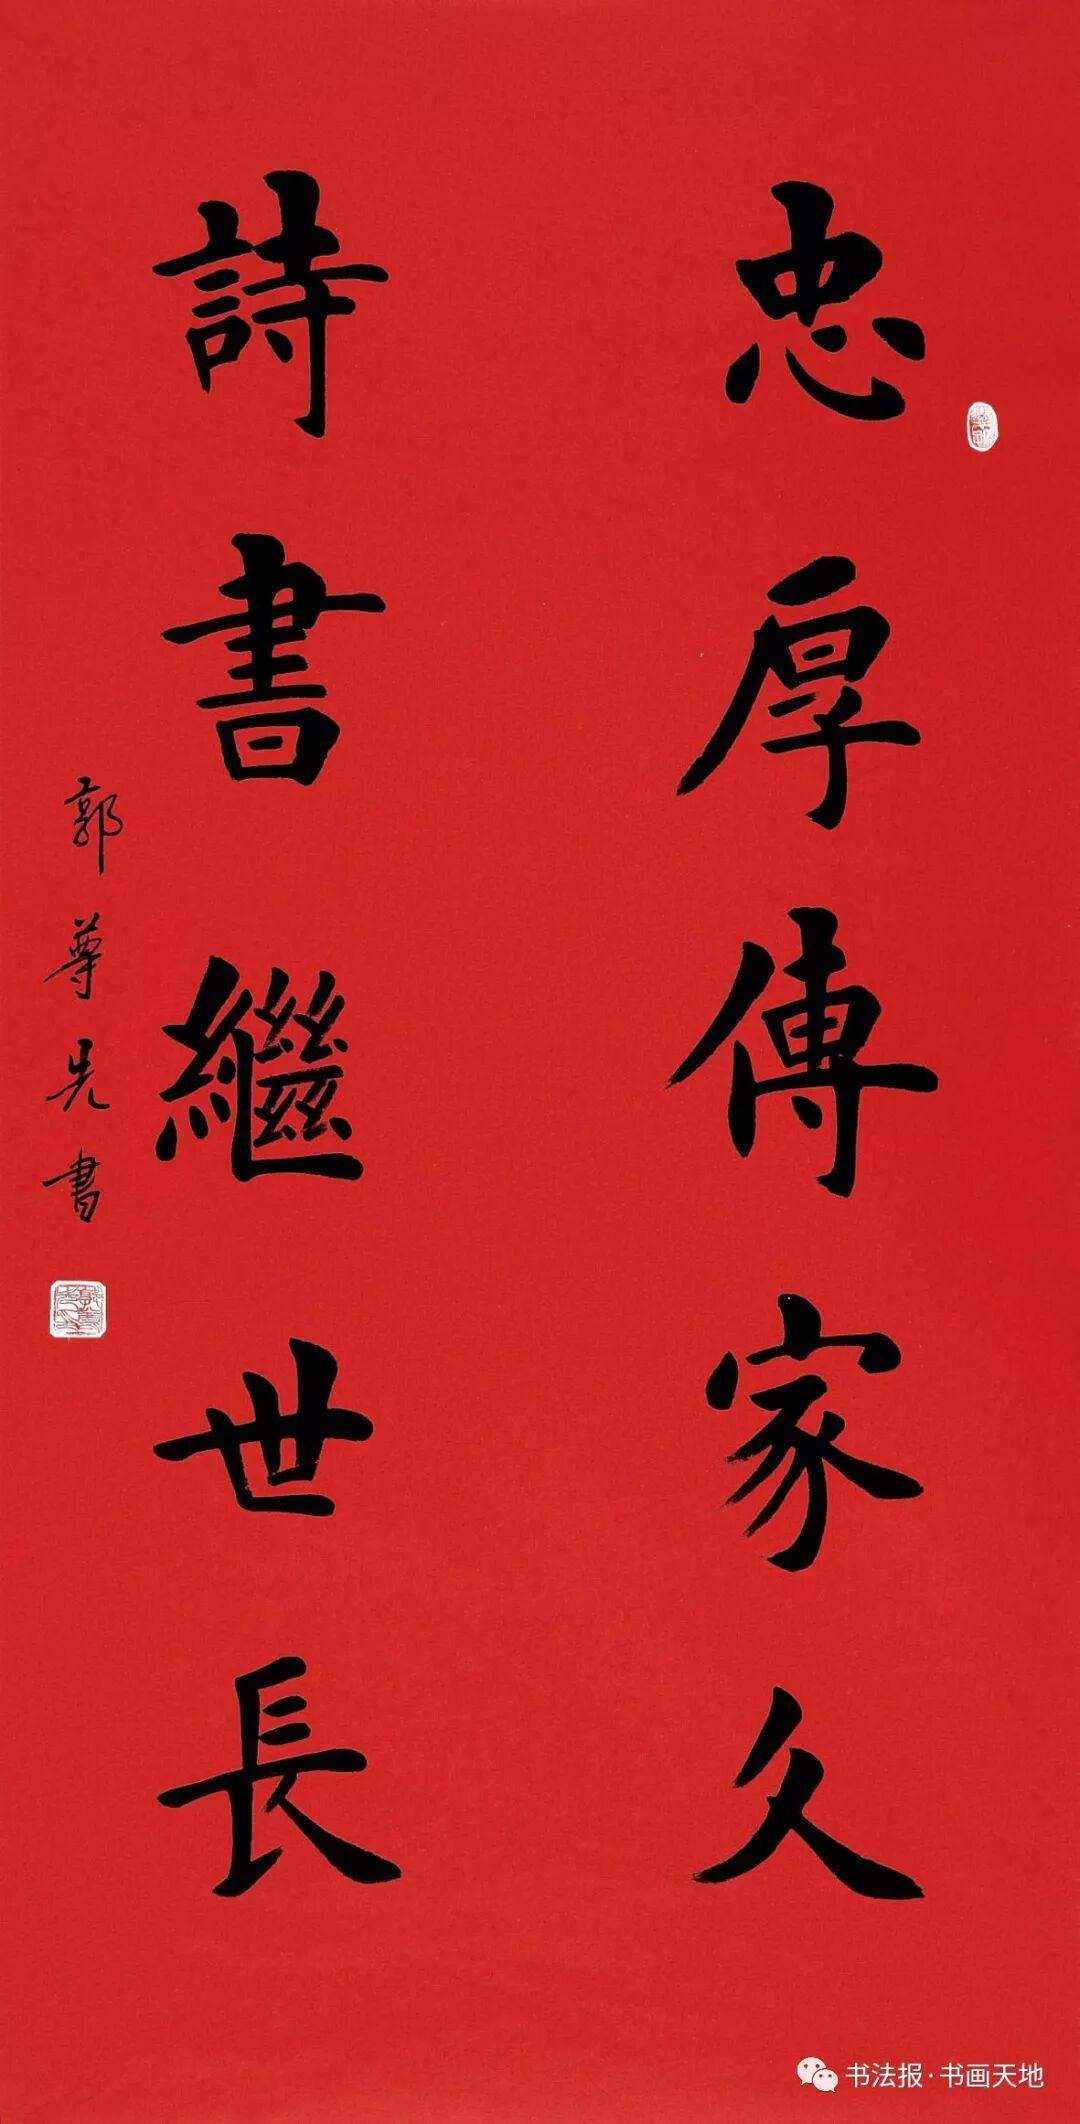 忠厚傳家久
詩書繼世長
郭尊先書
书法报·书画天地